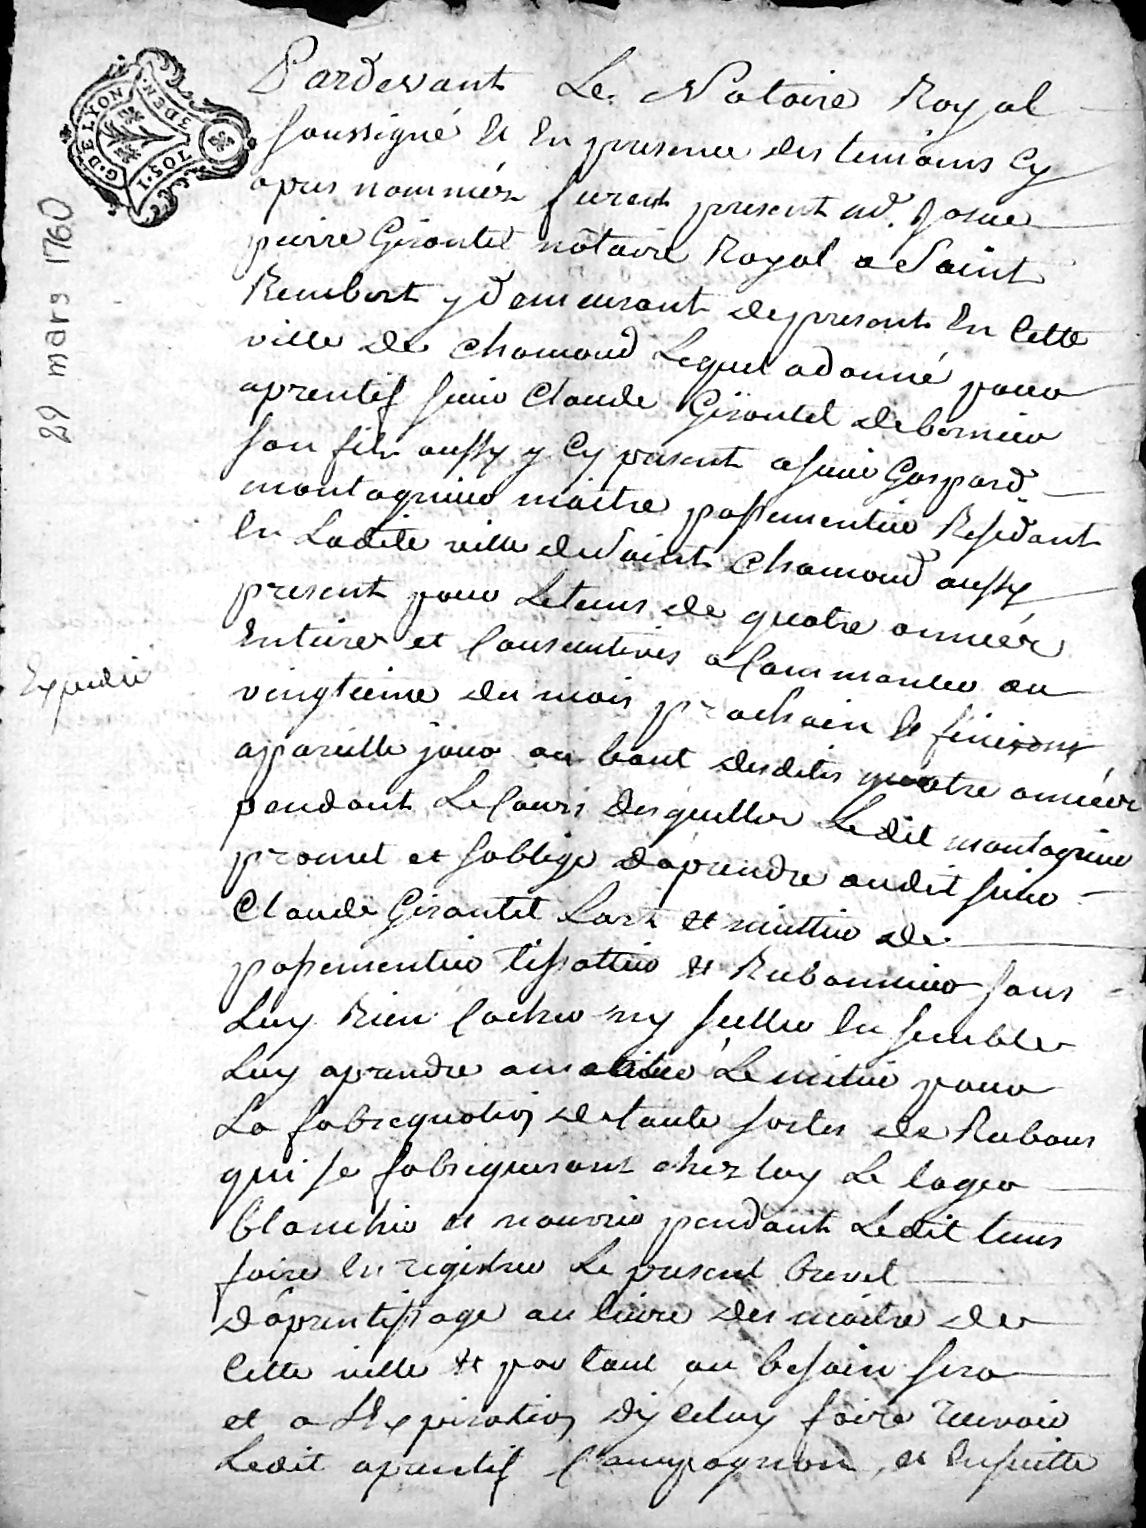 G. DE LYON
3 DEN.
TOS. 1
29 mars 1760
Expedié
Pardevant Le Notaire Royal
soussigné et En presence des temoins Cy
apres nommés furent present Me. Josué
pierre Girontet notaire Royal a Saint
Rembert y demeurant de present En Cette
ville de Chamond Lequel a donné pour
aprentif sieur Claude Girontet
son fils aussy y Cy present a sieur Gaspard
montagnier maitre passementier Residant
En Ladite ville de Saint Chamond aussy
present pour Le tems de quatre années
Entieres et Consecutives a Commancer au
vingtieme du mois prochain et finiront
a pareille jour au bout desdites quatre années
pendant Le Cours desquelles Ledit montagnier
promet et soblige daprendre audit sieur
Claude Girontet Lart et mettier de
passementier tissottier et Rubannier sans
Luy Rien Cacher ny seeller En semble
Luy aprendre a Le metier pour
La fabrequation de toute sortes de Rubans
qui se fabriqueront chez luy Le loger
blanchir et nourrir pendant Ledit tems
faire En registrer Le present brevet
daprentissage au livre des maitre de
Cette ville et par tout ou besoin sera
et a LExpiration dy Celuy faire recevoir
Ledit aprentif Compagnon, et Ensuitte